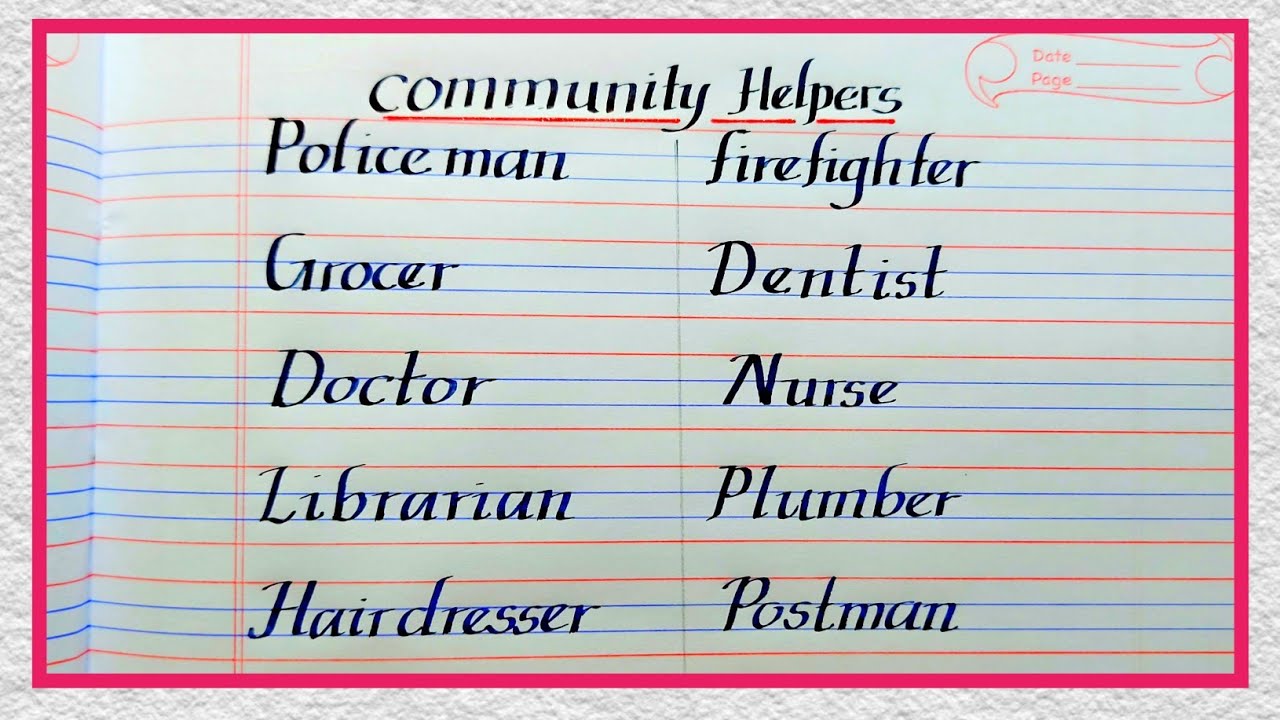 Date
Page
Community Helpers
Police man firefighter
Grocer Dentist
Doctor Nurse
Librarian Plumber
Hairdresser Postman